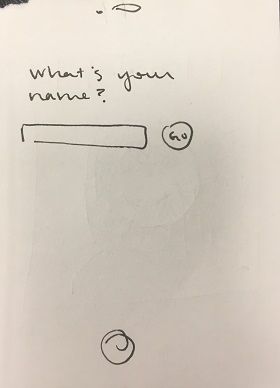 what's your
name?
Go